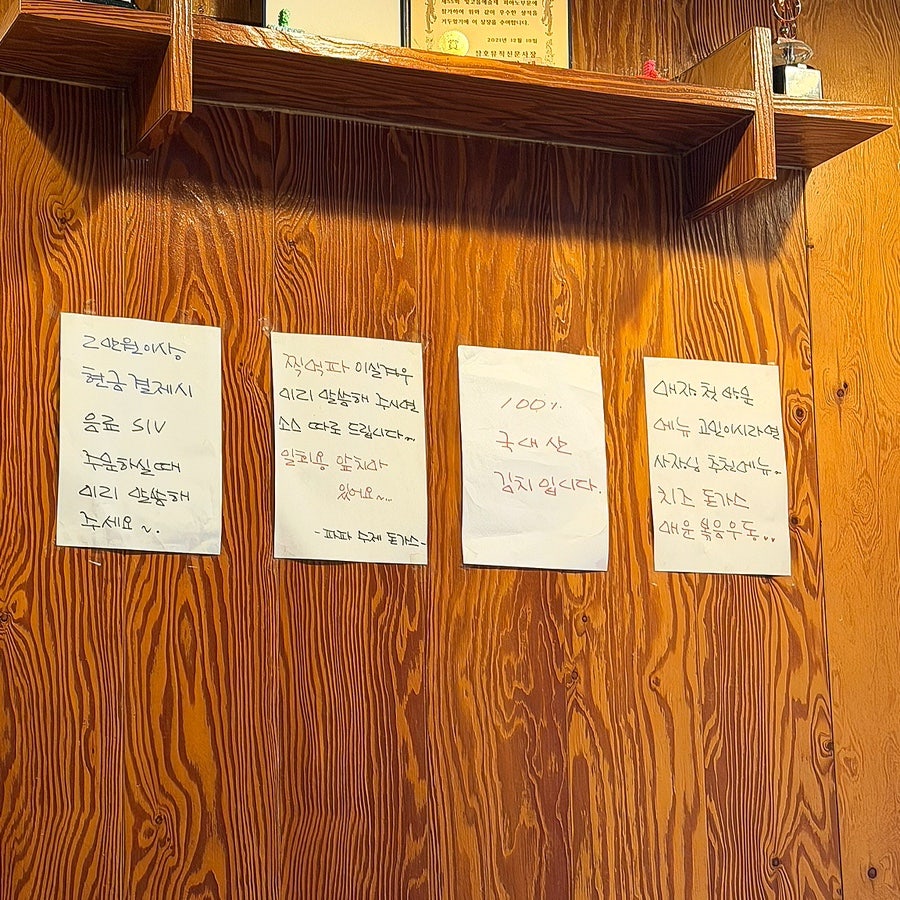 참가하여 위와 같이 우수한 성적을
거두었기에 이 상장을 수여합니다.
2021년 12월 19일
2만원이상
현금결제시
음료 SIV
주문하실때
미리 말씀해
주세요~.
찍어파 이실경우
미리 말씀해 주시면
소스 따로 드립니다..
일회용 앞치마
있어요~...
-파파 수제 돈가스-
100%
국내산
김치입니다.
매장 첫 방문
메뉴 고민이시라면
사장님 추천메뉴..
치즈 돈가스
매운볶음우동..